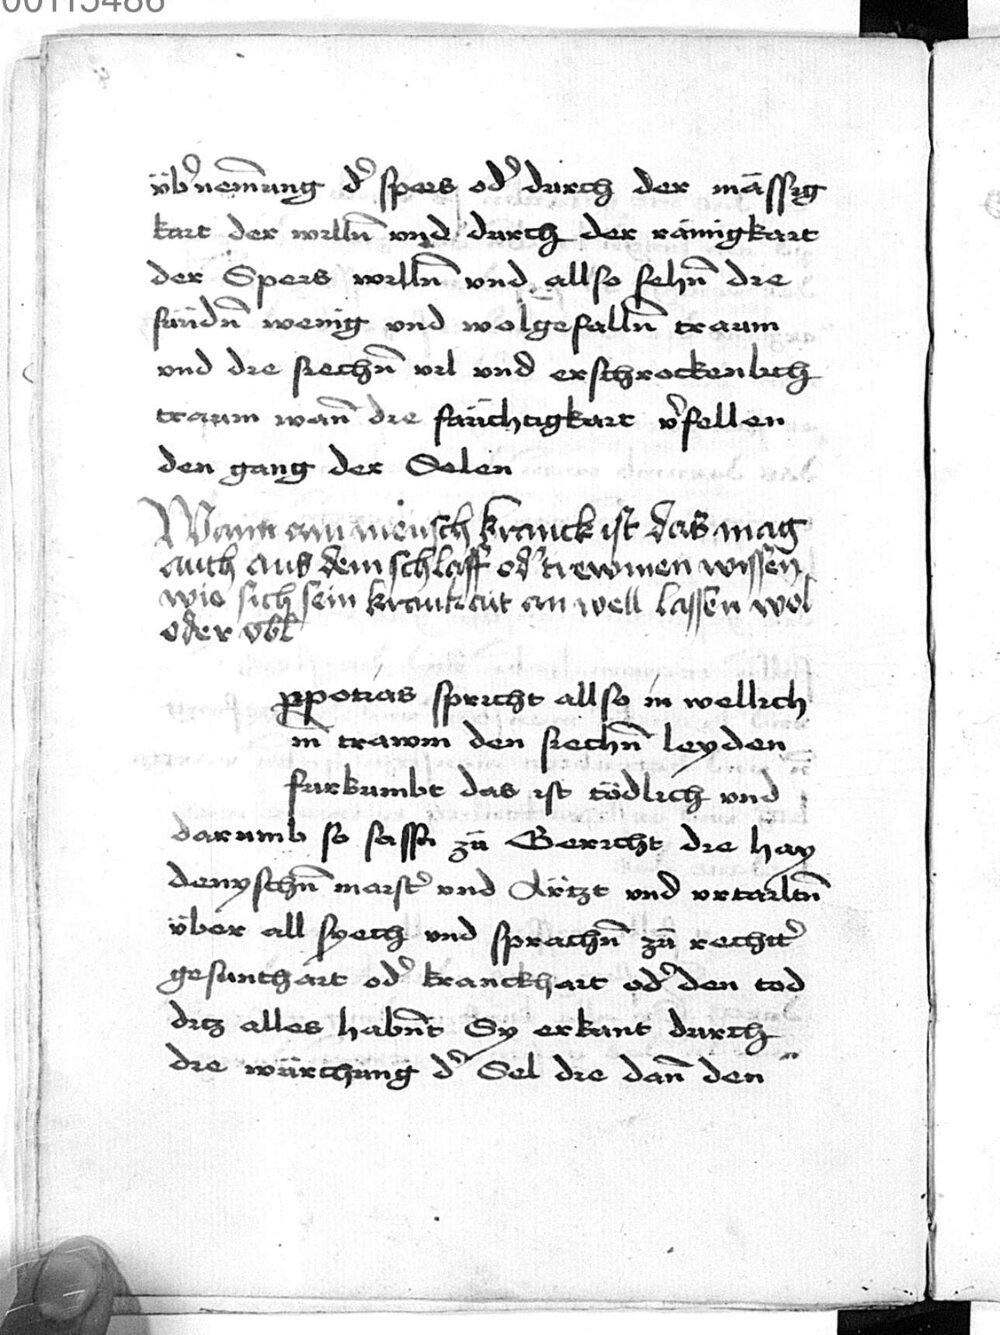 00115486
übˀnemung dˀ speis odˀ durch der mässig
kait der willn̄ vnd durch der rämigkait
der Speis willn̄ vnd allso sehn̄ die
sündn̄ wenig vnd wolgefalln̄ traum
vnd die siechn̄ vil vnd erschrockenlich
traum wan̄ die fäüchtigkait vˀfellen
den gang der Selen
Wann ain mensch kranck ist das mag
auch aus dem schlaff odˀ trewmen wissen
wie sich sein kranckait an well lassen wol
oder vbl
ypotras spricht allso in wellich
in̄ trawm den siechn̄ leyden
furkumbt das ist tödlich vnd
darumb so sassn̄ zū Gericht die hay
denyschn̄ maistˀ vnd Ärtzt vnd vrtailtn̄
über all syech vnd sprachn̄ zū rechtˀ
gesunthait odˀ kranckhait odˀ den tod
ditz alles habn̄t Sy erkant durch
die würchung dˀ Sel die dan̄ den